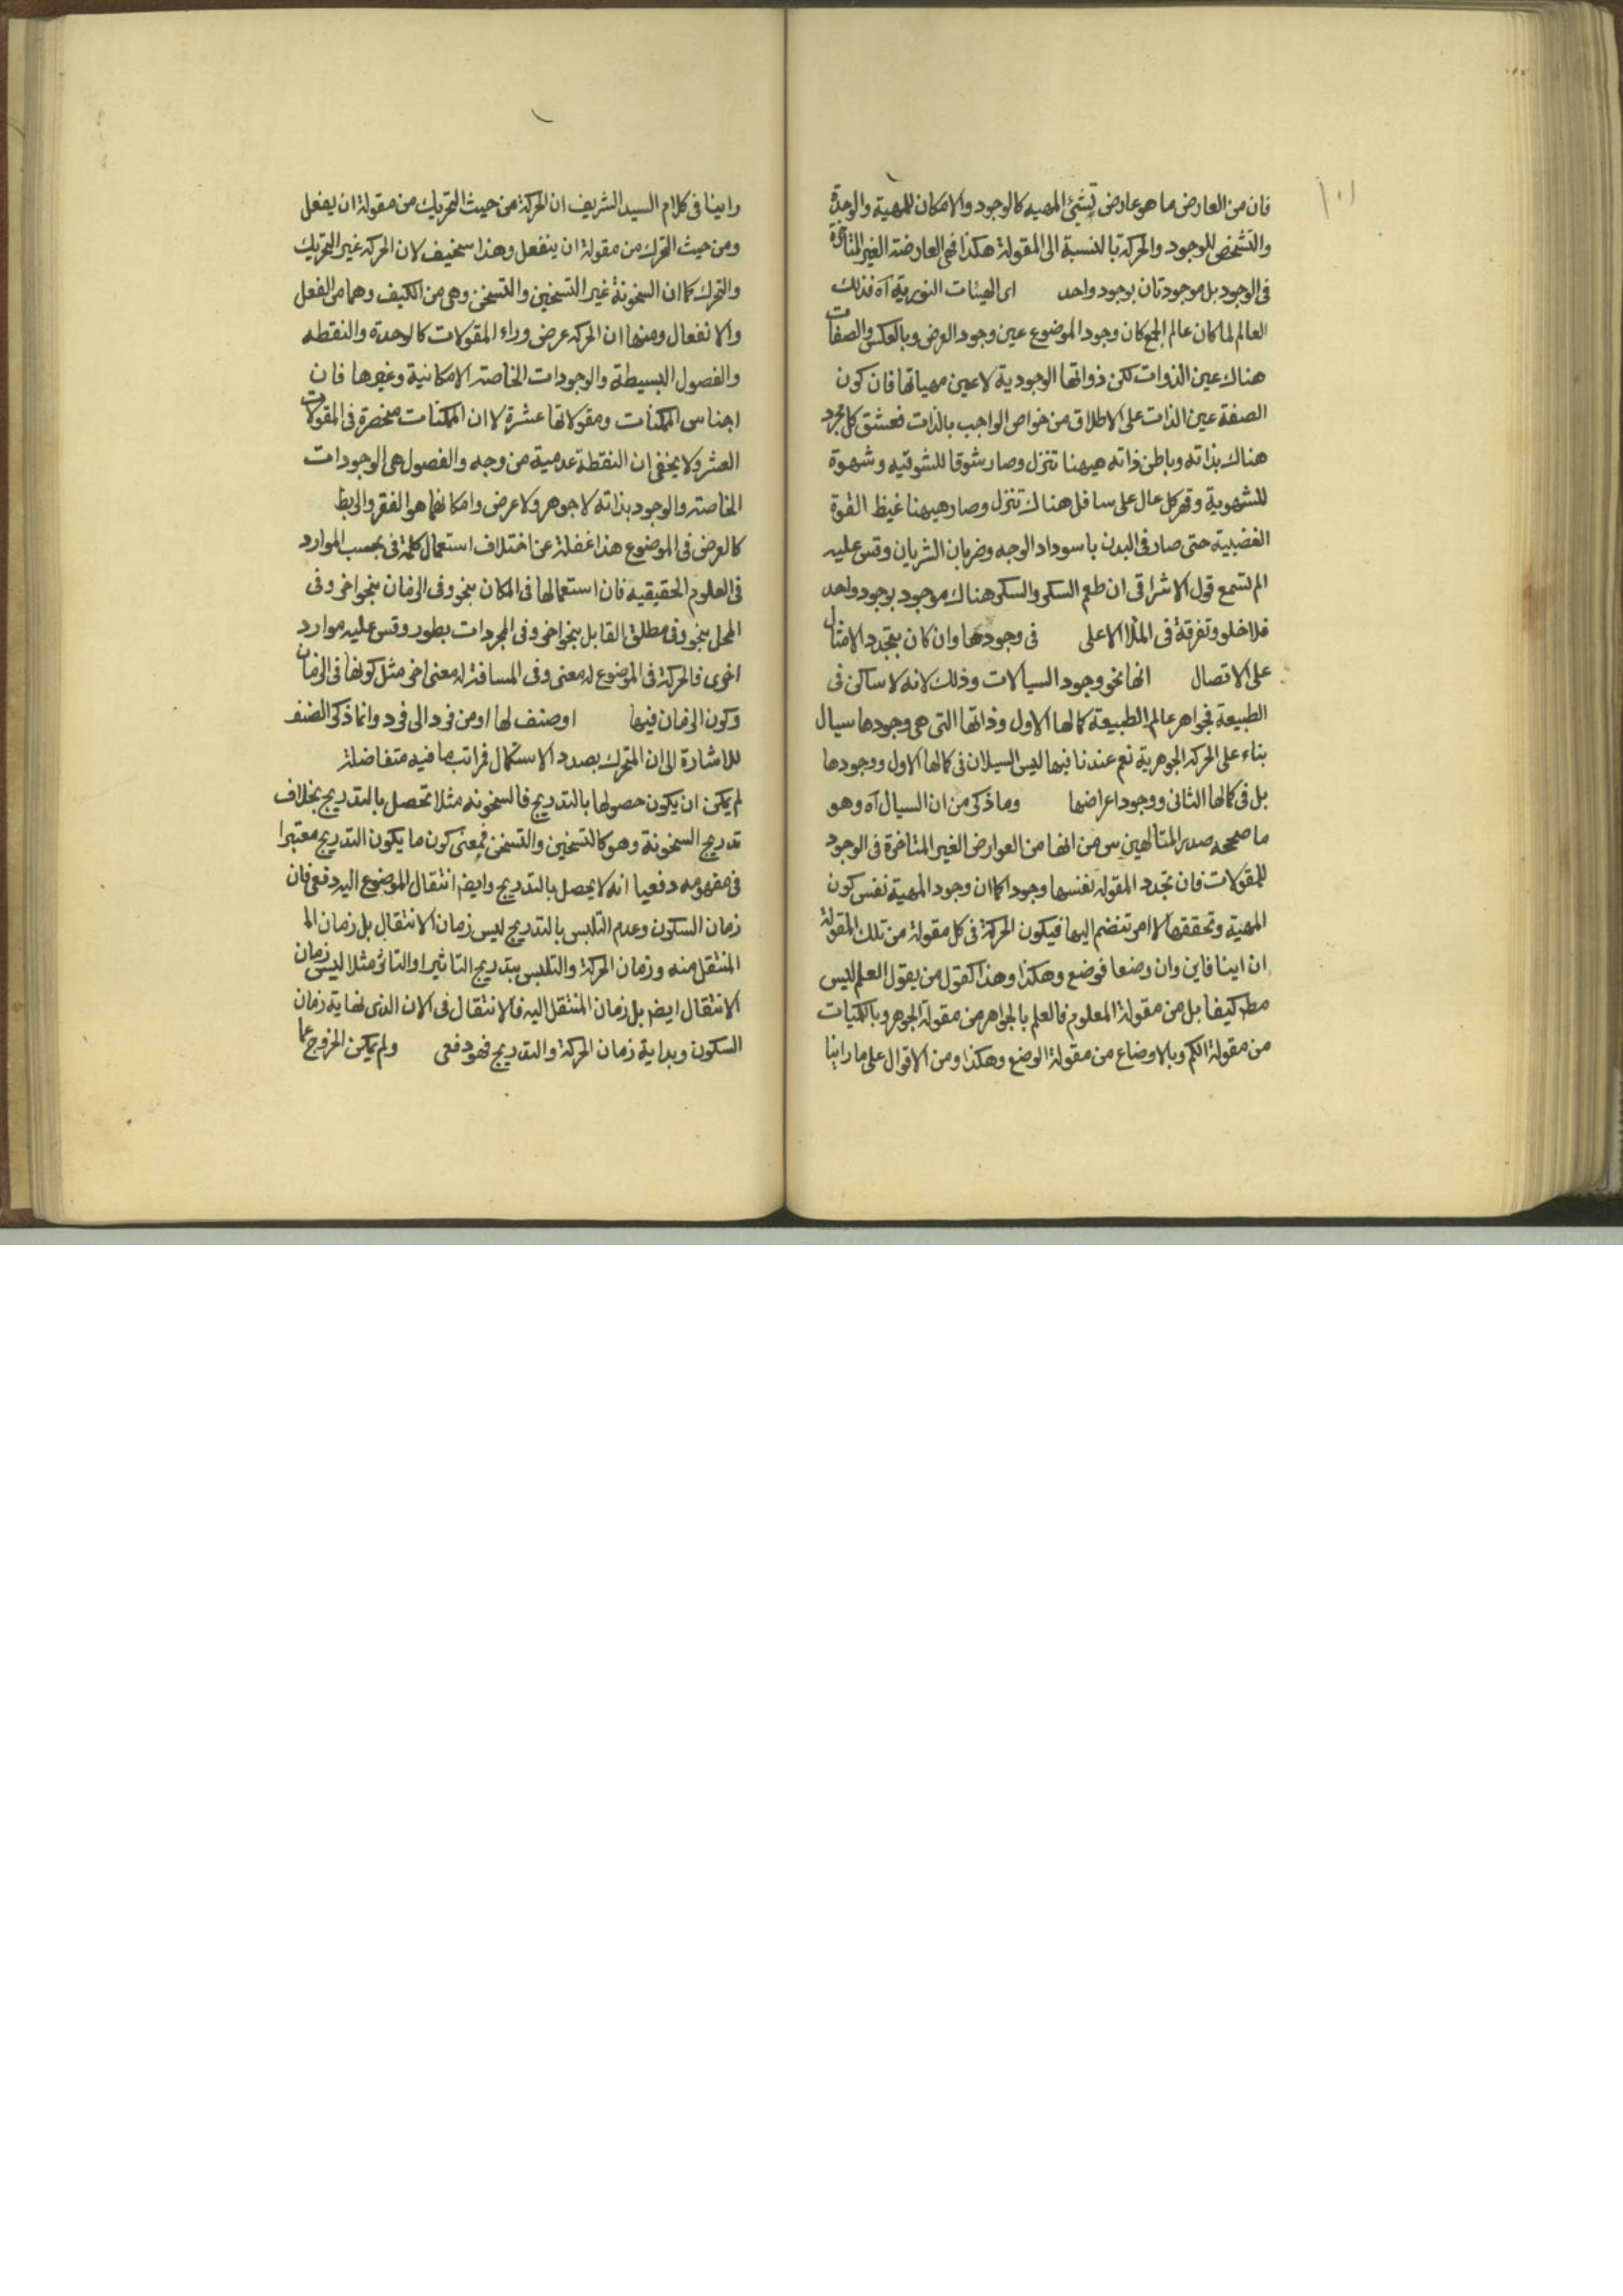 ١٠١
فان من العارض ما هو عارض لشيئ المهيه كالوجود والامكان للمهية والوحدة
والتشخص للوجود والحركة بالنسبة الى المقولة هكذا فهى العارضة الغير المتاخرة
فى الوجود بل موجودتان بوجود واحد اى الهيئات النورية آه فذلك
العالم لما كان عالم الجمع كان وجود الموضوع عين وجود العرض وبالعكس والصفات
هناك عين الذوات لكن ذواتها الوجودية لا عين مهياتها فان كون
الصفة عين الذات على الاطلاق من خواص الواجب بالذات فعشق كل مجرد
هناك بذاته وباطن ذاته هيهنا تنزل وصار شوقا للشوقيه وشهوة
للشهوية وقهر كل عال على سافل هناك تنزل وصار هيهنا غيظ القوة
الغضبية حتى صار فى البدن باسوداد الوجه وضربان الشريان وقس عليه
الم تسمع قول الاشراقى ان طعم السكر والسكر هناك موجود بوجود واحد
فلا خلو وتفرقة فى الملأ الاعلى فى وجودها وان كان بتجدد الامثال
على الاتصال انها نحو وجود السيالات وذلك لانه لا ساكن فى
الطبيعة فجواهر عالم الطبيعة كمالها الاول وذاتها التى هى وجودها سيال
بناء على الحركة الجوهرية نعم عندنا فيها ليس السيلان فى كمالها الاول ووجودها
بل فى كمالها الثانى ووجود اعراضها وما ذكر من ان السيال آه وهو
ما صححه صدر المتالهين س من انها من العوارض الغير المتاخرة فى الوجود
للمقولات فان تجدد المقولة نفسها وجودا كما ان وجود المهية نفس كون
المهية وتحققها لا امر تنضم اليها فيكون الحركة فى كل مقولة من تلك المقولة
ان اينا فاين وان وضعا فوضع وهكذا وهذا كقول من يقول العلم ليس
مط كيفا بل من مقولة المعلوم فالعلم بالجواهر من مقولة الجوهر وبالكميات
من مقولة الكم وبالاوضاع من مقولة الوضع وهكذا ومن الاقوال على ما راينا
راينا فى كلام السيد الشريف ان الحركة من حيث التحريك من مقولة ان يفعل
ومن حيث التحرك من مقولة ان ينفعل وهذا سخيف لان الحركة غير التحريك
والتحرك كما ان السخونة غير التسخين والتسخن وهى من الكيف وهما من الفعل
والانفعال ومنها ان الحركه عرض وراء المقولات كالوحدة والنقطه
والفصول البسيطة والوجودات الخاصة الامكانية وغيرها فان
اجناس الممكنات ومقولاتها عشرة لا ان الممكنات منحصرة فى المقولات
العشر ولا يخفى ان النقطة عدمية من وجه والفصول هى الوجودات
الخاصة والوجود بذاته لا جوهر ولا عرض وامكانهما هو الفقر والربط
كالعرض فى الموضوع هذا غفلة عن اختلاف استعمال كلمة فى بحسب الموارد
فى العلوم الحقيقية فان استعمالها فى المكان بنحو وفى الزمان بنحو اخر وفى
المحل بنحو وفى مطلق القابل بنحو اخر وفى المجردات بطور وقس عليه موارد
اخرى فالحركة فى الموضوع له معنى وفى المسافة له معنى اخر مثل كونها فى الزمان
وكون الزمان فيها او صنف لها او من فرد الى فرد وانما ذكر الصنف
للاشارة الى ان المتحرك بصدد الاستكمال فمراتب ما فيه متفاضلة
لم يمكن ان يكون حصولها بالتدريج فالسخونه مثلا تحصل بالتدريج بخلاف
تدريج السخونة وهو كالتسخين والتسخن فمعنى كون ما يكون التدريج معتبرا
فى مفهومه دفعيا انه لا يحصل بالتدريج وايض انتقال الموضوع اليه دفعى فان
زمان السكون وعدم التلبس بالتدريج ليس زمان الانتقال بل زمان الـ
المنتقل منه وزمان الحركة والتلبس بتدريج التاثير او التاثر مثلا ليس زمان
الانتقال ايض بل زمان المنتقل اليه فالانتقال فى الان الذى نهاية زمان
السكون وبداية زمان الحركة والتدريج فهو دفعى ولم يمكن الخروج عما